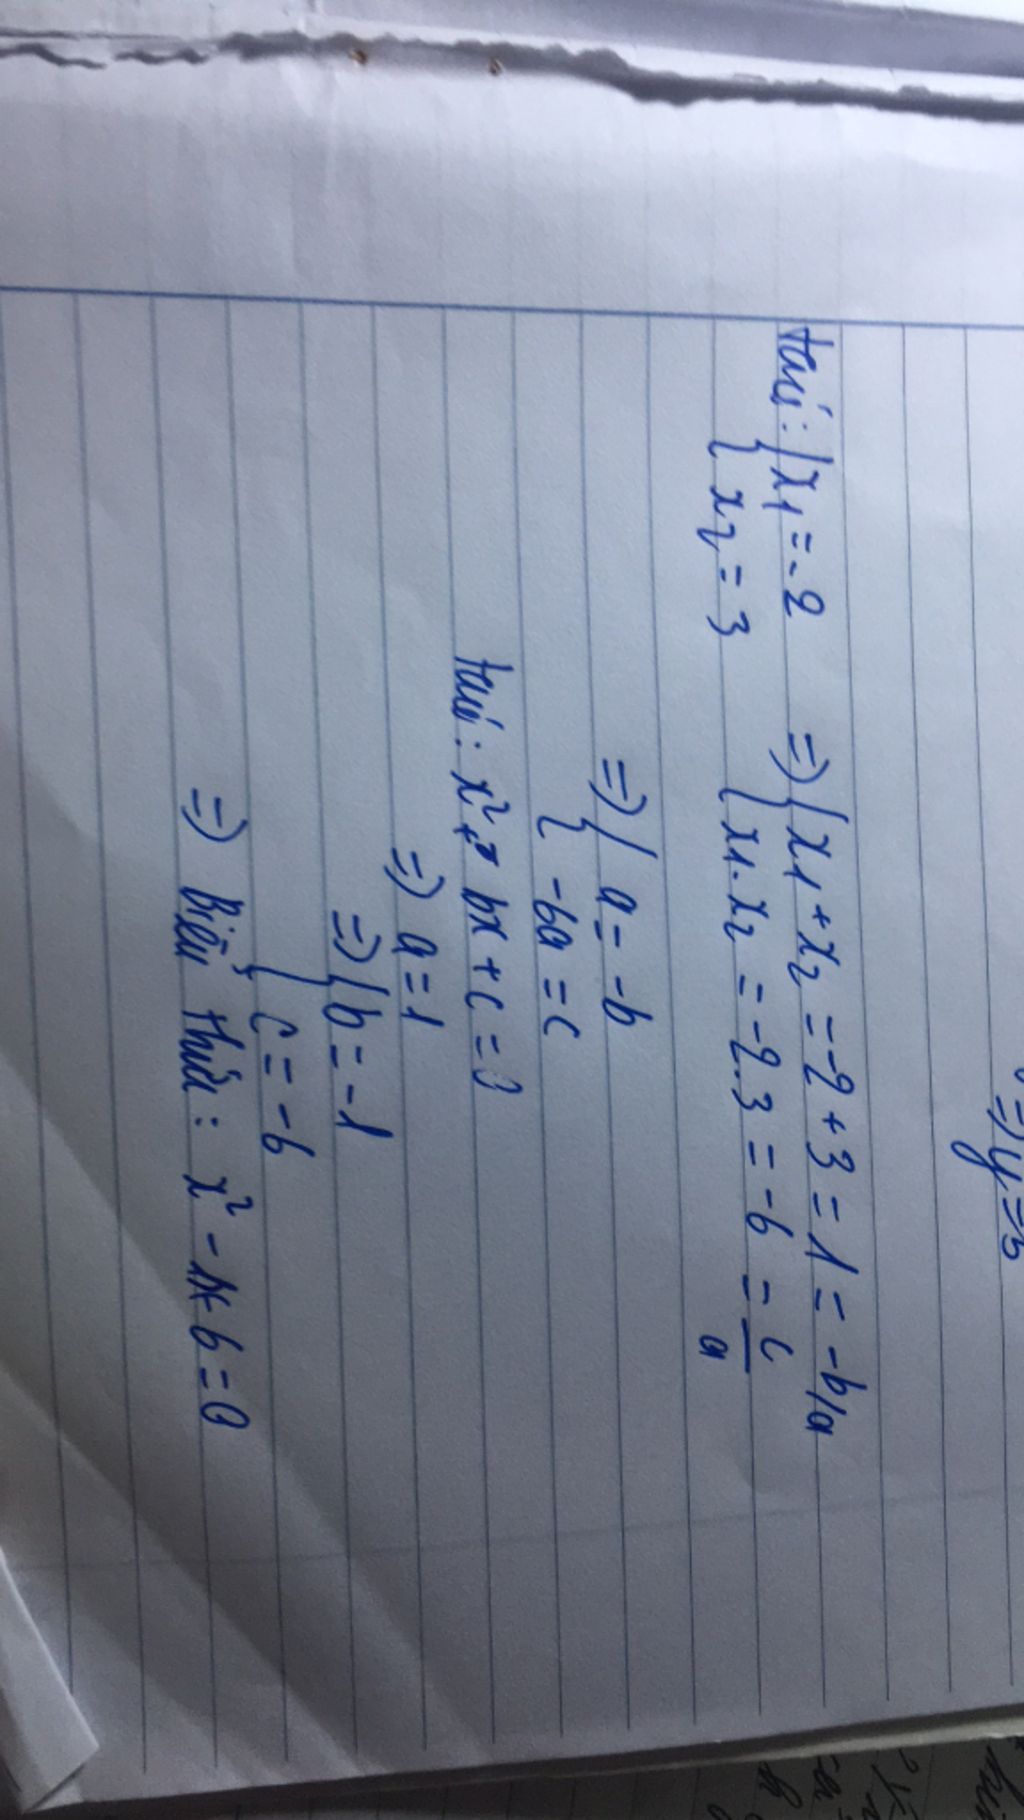 ta có: { x1 = -2 => { x1 + x2 = -2 + 3 = 1 = -b/a
x2 = 3 x1 . x2 = -2.3 = -6 = c/a
=> { a = -b
-6a = c
ta có: x² + bx + c = 0
=> a = 1
=> { b = -1
c = -6
=> Biểu thức: x² - 1x - 6 = 0
=> y = 5